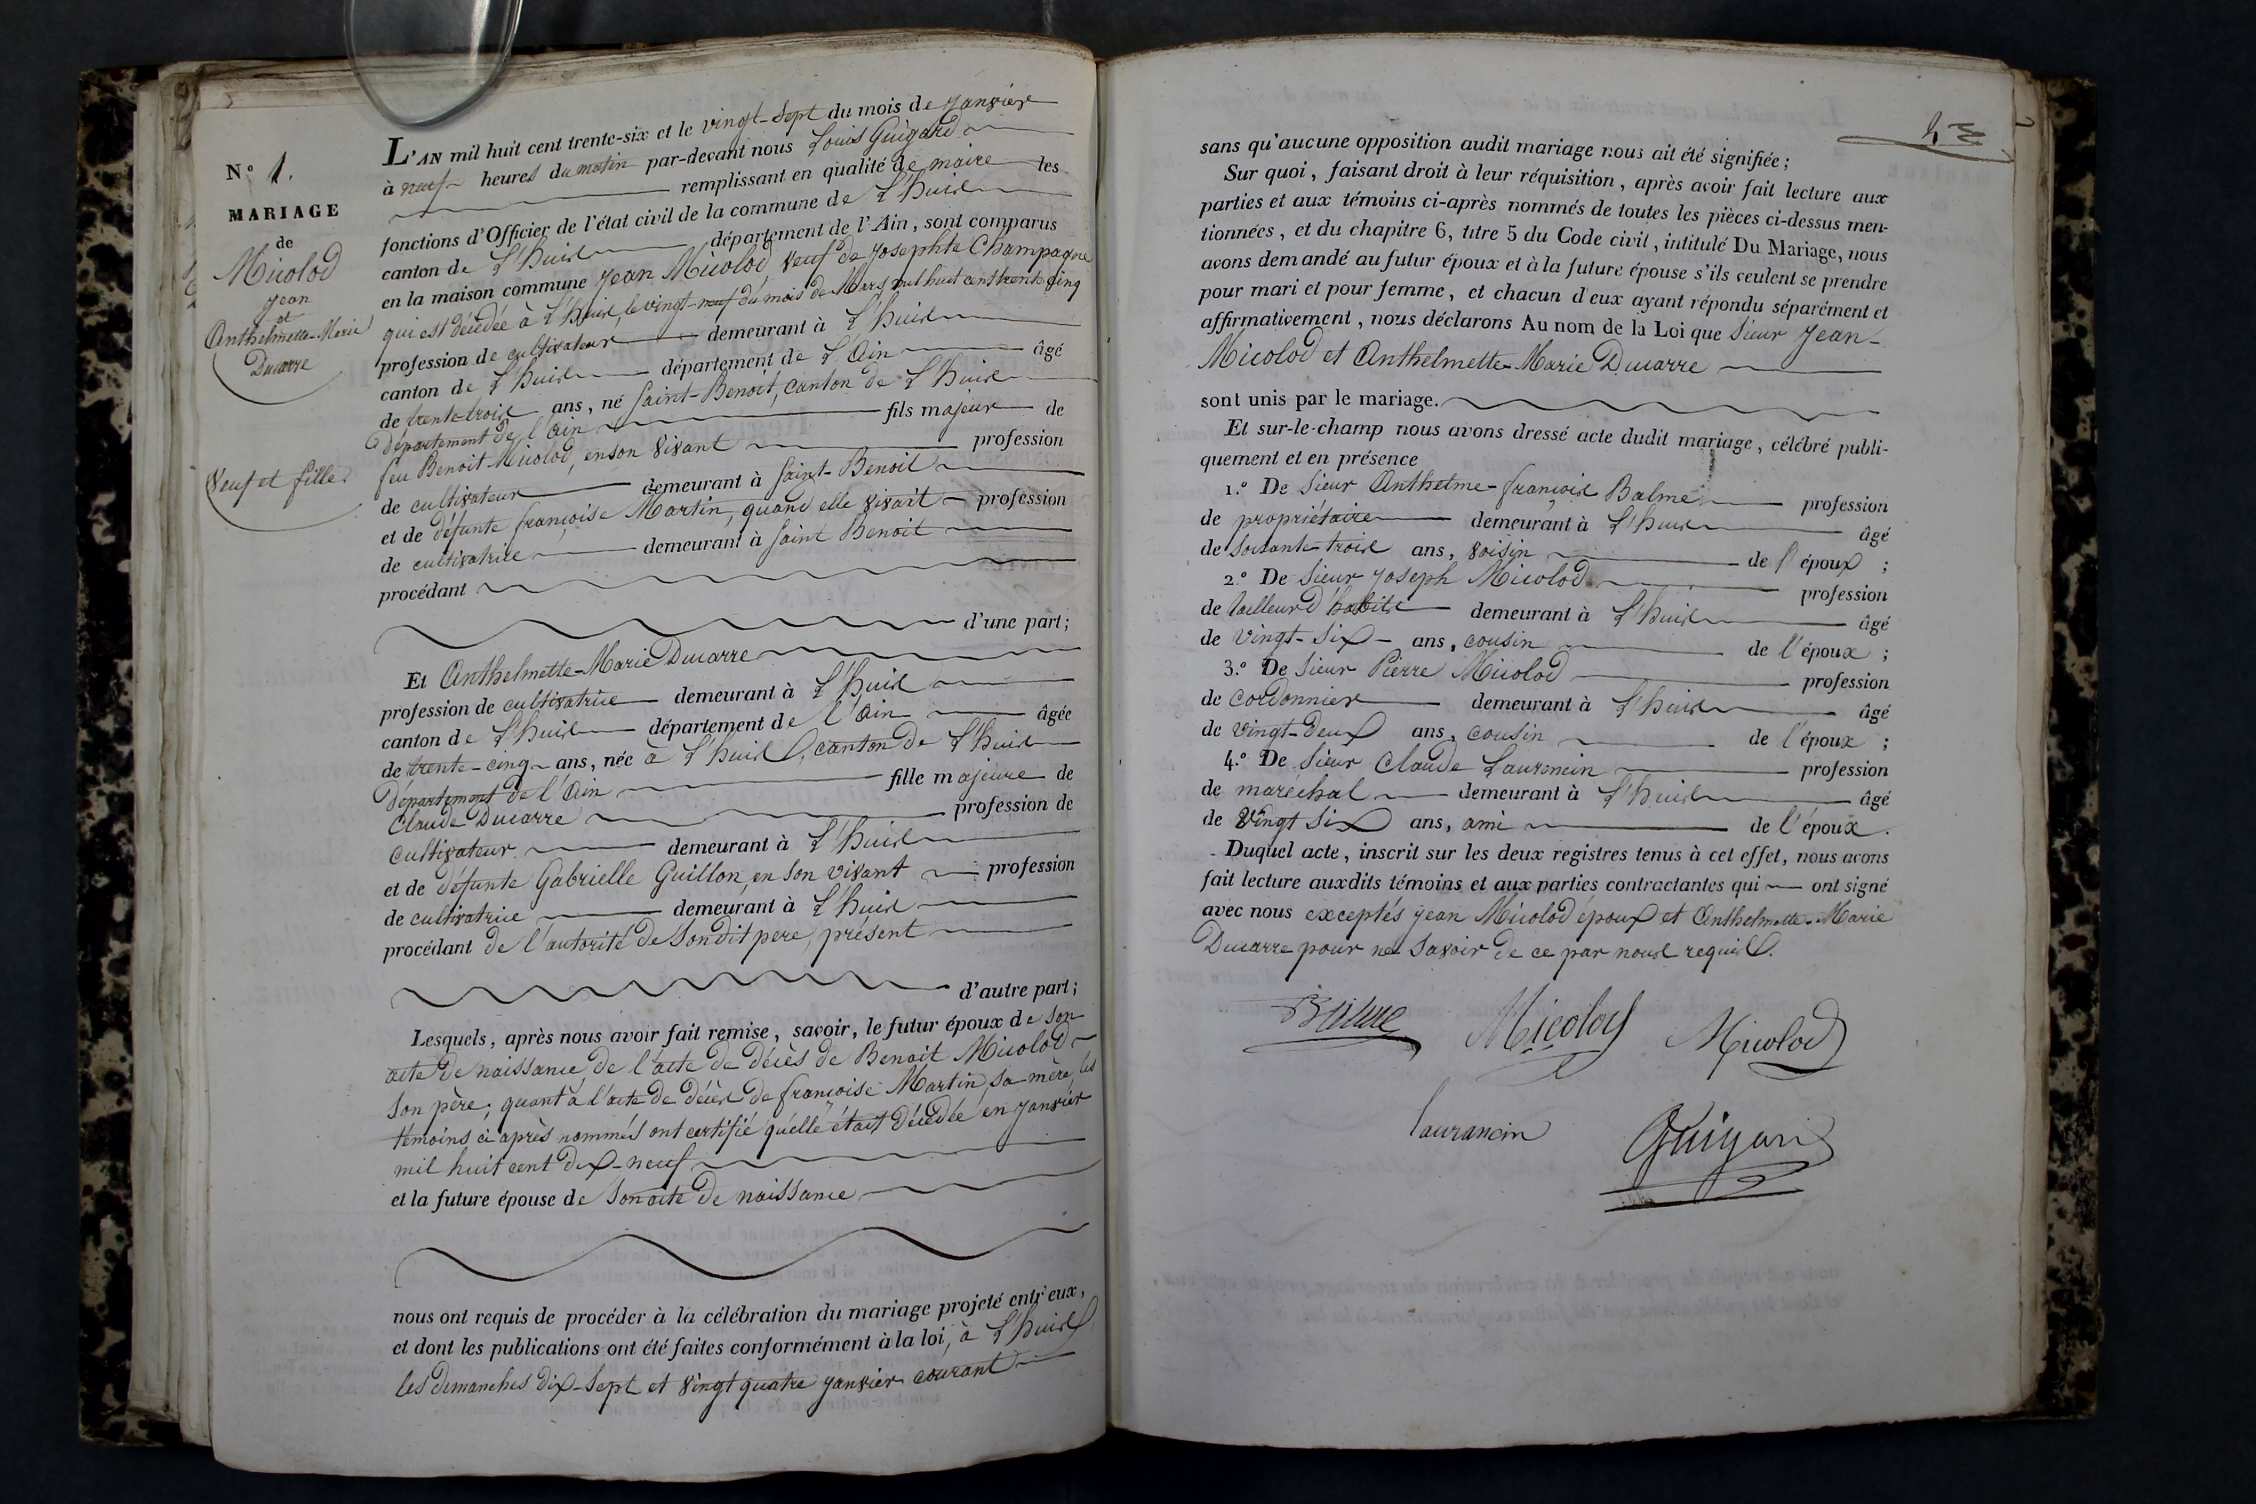 N.° 1.
MARIAGE
de
Micolod
Jean
et
Anthelmette-Marie
Ducarre
Veuf et fille.
L'AN mil huit cent trente-six et le vingt-sept du mois de janvier
à neuf heures du matin par-devant nous Louis Guigard
remplissant en qualité de maire les
fonctions d'Officier de l'état civil de la commune de L'huis
canton de L'huis département de l'Ain, sont comparus
en la maison commune Jean Micolod, veuf de Josephte Champagne
qui est décédée à L'huis, le vingt-neuf du mois de Mars mil huit cent trente cinq
profession de cultivateur demeurant à L'huis
canton de L'huis département de L'Ain âgé
de trente-trois ans, né Saint-Benoit, canton de L'huis
département de l'Ain fils majeur de
feu Benoit Micolod, en son vivant profession
de cultivateur demeurant à Saint-Benoit
et de défunte françoise Martin, quand elle vivait profession
de cultivatrice demeurant à Saint Benoit
procédant
d'une part;
Et Anthelmette-Marie Ducarre
profession de cultivatrice demeurant à L'huis
canton de L'huis département de l'Ain âgée
de trente-cinq ans, née à L'huis, canton de L'huis
département de l'Ain fille majeure de
Claude Ducarre profession de
cultivateur demeurant à L'huis
et de défunte Gabrielle Guillon, en son vivant profession
de cultivatrice demeurant à L'huis
procédant de l'autorité de Son dit pere, présent
d'autre part;
Lesquels, après nous avoir fait remise, savoir, le futur époux de Son
acte de naissance de l'acte de décès de Benoit Micolod
Son père; quant à l'acte de décès de françoise Martin, sa mère, les
témoins ci après nommés ont certifié quélle était décédée en janvier
mil huit cent dix-neuf
et la future épouse de Son acte de naissance
nous ont requis de procéder à la célébration du mariage projeté entr'eux,
et dont les publications ont été faites conformément à la loi, à L'huis
les demanches dix-Sept et vingt quatre janvier courant
sans qu'aucune opposition audit mariage nous ait été signifiée;
Sur quoi, faisant droit à leur réquisition, après avoir fait lecture aux
parties et aux témoins ci-après nommés de toutes les pièces ci-dessus men-
tionnées, et du chapitre 6, titre 5 du Code civil, intitulé Du Mariage, nous
avons demandé au futur époux et à la future épouse s'ils veulent se prendre
pour mari et pour femme, et chacun d'eux ayant répondu séparément et
affirmativement, nous déclarons Au nom de la Loi que Sieur Jean-
Micolod et Anthelmette-Marie Ducarre
sont unis par le mariage.
Et sur-le-champ nous avons dressé acte dudit mariage, célébré publi-
quement et en présence
1.° De Sieur Anthelme-françois Balme profession
de propriétaire demeurant à L'huis âgé
de Soixante-trois ans, voisin de l'époux;
2.° De Sieur Joseph Micolod profession
de tailleur d'habits demeurant à L'huis âgé
de vingt-Six ans, cousin de l'époux;
3.° De Sieur Pierre Micolod profession
de cordonnier demeurant à L'huis âgé
de vingt-deux ans, cousin de l'époux;
4.° De Sieur Claude Laurencin profession
de maréchal demeurant à L'huis âgé
de vingt Six ans, ami de l'époux.
Duquel acte, inscrit sur les deux registres tenus à cet effet, nous avons
fait lecture auxdits témoins et aux parties contractantes qui ont signé
avec nous exceptés Jean Micolod époux et Anthelmette-Marie
Ducarre pour ne Savoir de ce par nous requis.
Balme Micolod Micolod
Laurancin Guigard